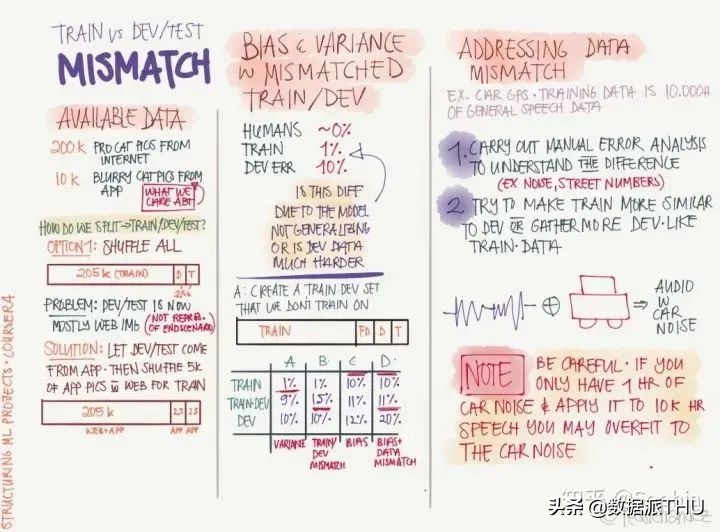 TRAIN VS DEV/TEST
MISMATCH
AVAILABLE DATA
200 K PRO CAT PICS FROM
INTERNET
10 K BLURRY CAT PICS FROM
APP
WHAT WE
CARE ABT
HOW DO WE SPLIT → TRAIN/DEV/TEST?
OPTION 1: SHUFFLE ALL
205 K (TRAIN) D T
PROBLEM: DEV/TEST IS NOW
MOSTLY WEB IMG (NOT REPR.
OF END SCENARIO)
SOLUTION: LET DEV/TEST COME
FROM APP. THEN SHUFFLE 5K
OF APP PICS W WEB FOR TRAIN
205 K 2.5 2.5
WEB+APP APP APP
STRUCTURING ML PROJECTS · COURSERA
BIAS & VARIANCE
W MISMATCHED
TRAIN/DEV
HUMANS ~0%
TRAIN 1%
DEV ERR 10%
IS THIS DIFF
DUE TO THE MODEL
NOT GENERALIZING
OR IS DEV DATA
MUCH HARDER
A: CREATE A TRAIN-DEV SET
THAT WE DON'T TRAIN ON
TRAIN TD D T
A B C D
TRAIN 1% 1% 10% 10%
TRAIN-DEV 9% 1.5% 11% 11%
DEV 10% 10% 12% 20%
VARIANCE TRAIN/ BIAS BIAS+
DEV DATA
MISMATCH MISMATCH
ADDRESSING DATA
MISMATCH
EX. CAR GPS · TRAINING DATA IS 10.000H
OF GENERAL SPEECH DATA
1. CARRY OUT MANUAL ERROR ANALYSIS
TO UNDERSTAND THE DIFFERENCE
(EX NOISE, STREET NUMBERS)
2. TRY TO MAKE TRAIN MORE SIMILAR
TO DEV OR GATHER MORE DEV-LIKE
TRAIN-DATA
⊕ ⇒ AUDIO
W CAR
NOISE
NOTE BE CAREFUL · IF YOU
ONLY HAVE 1 HR OF
CAR NOISE & APPLY IT TO 10K HR
SPEECH YOU MAY OVERFIT TO
THE CAR NOISE
头条 @数据派THU